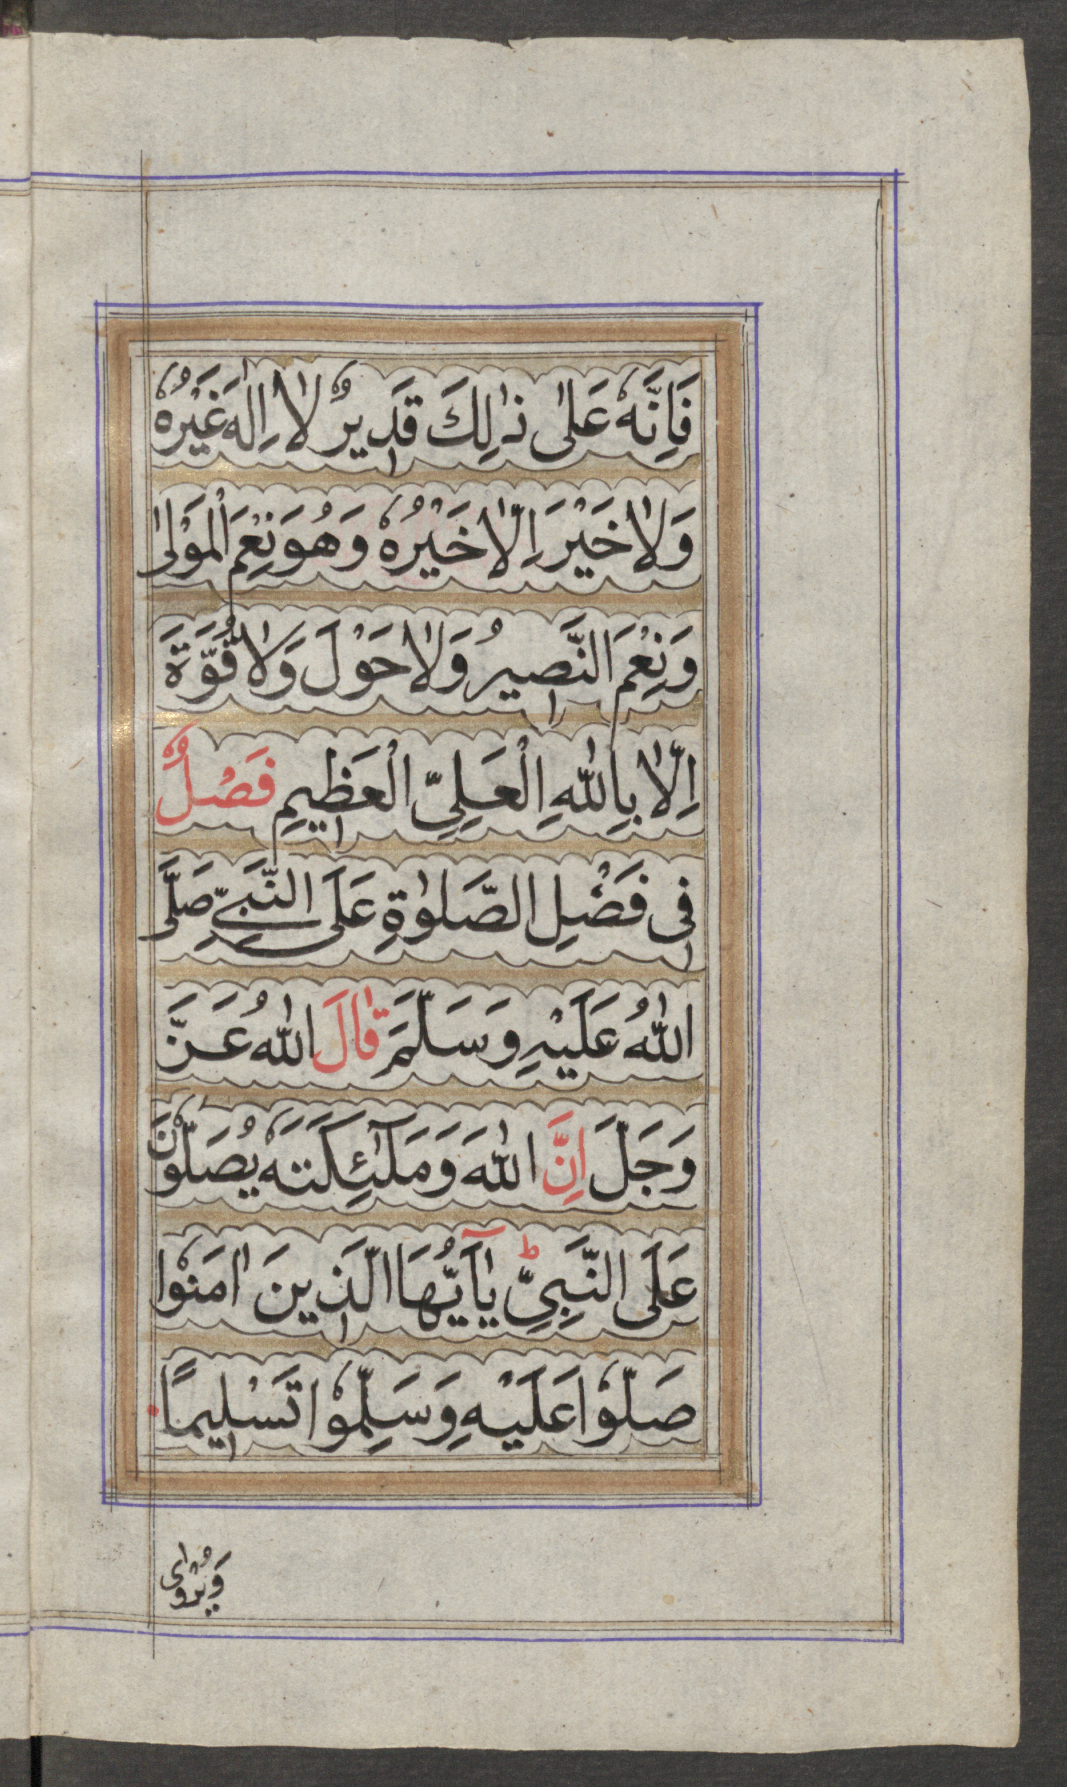 فَاِنَّهٗ عَلٰى ذٰلِكَ قَدِيرٌ لَا اِلٰهَ غَيْرُهٗ
وَلَا خَيْرَ اِلَّا خَيْرُهٗ وَهُوَ نِعْمَ الْمَوْلٰى
وَنِعْمَ النَّصِيرُ وَلَا حَوْلَ وَلَا قُوَّةَ
اِلَّا بِاللّٰهِ الْعَلِيِّ الْعَظِيمِ فَصْلٌ
فِى فَضْلِ الصَّلٰوةِ عَلَى النَّبِيِّ صَلَّى
اللّٰهُ عَلَيْهِ وَسَلَّمَ قَالَ اللّٰهُ عَزَّ
وَجَلَّ اِنَّ اللّٰهَ وَمَلٰٓئِكَتَهٗ يُصَلُّوْنَ
عَلَى النَّبِىِّ ط يٰٓاَيُّهَا الَّذِينَ اٰمَنُوْا
صَلُّوْا عَلَيْهِ وَسَلِّمُوْا تَسْلِيمًا
وَيُرْوٰى